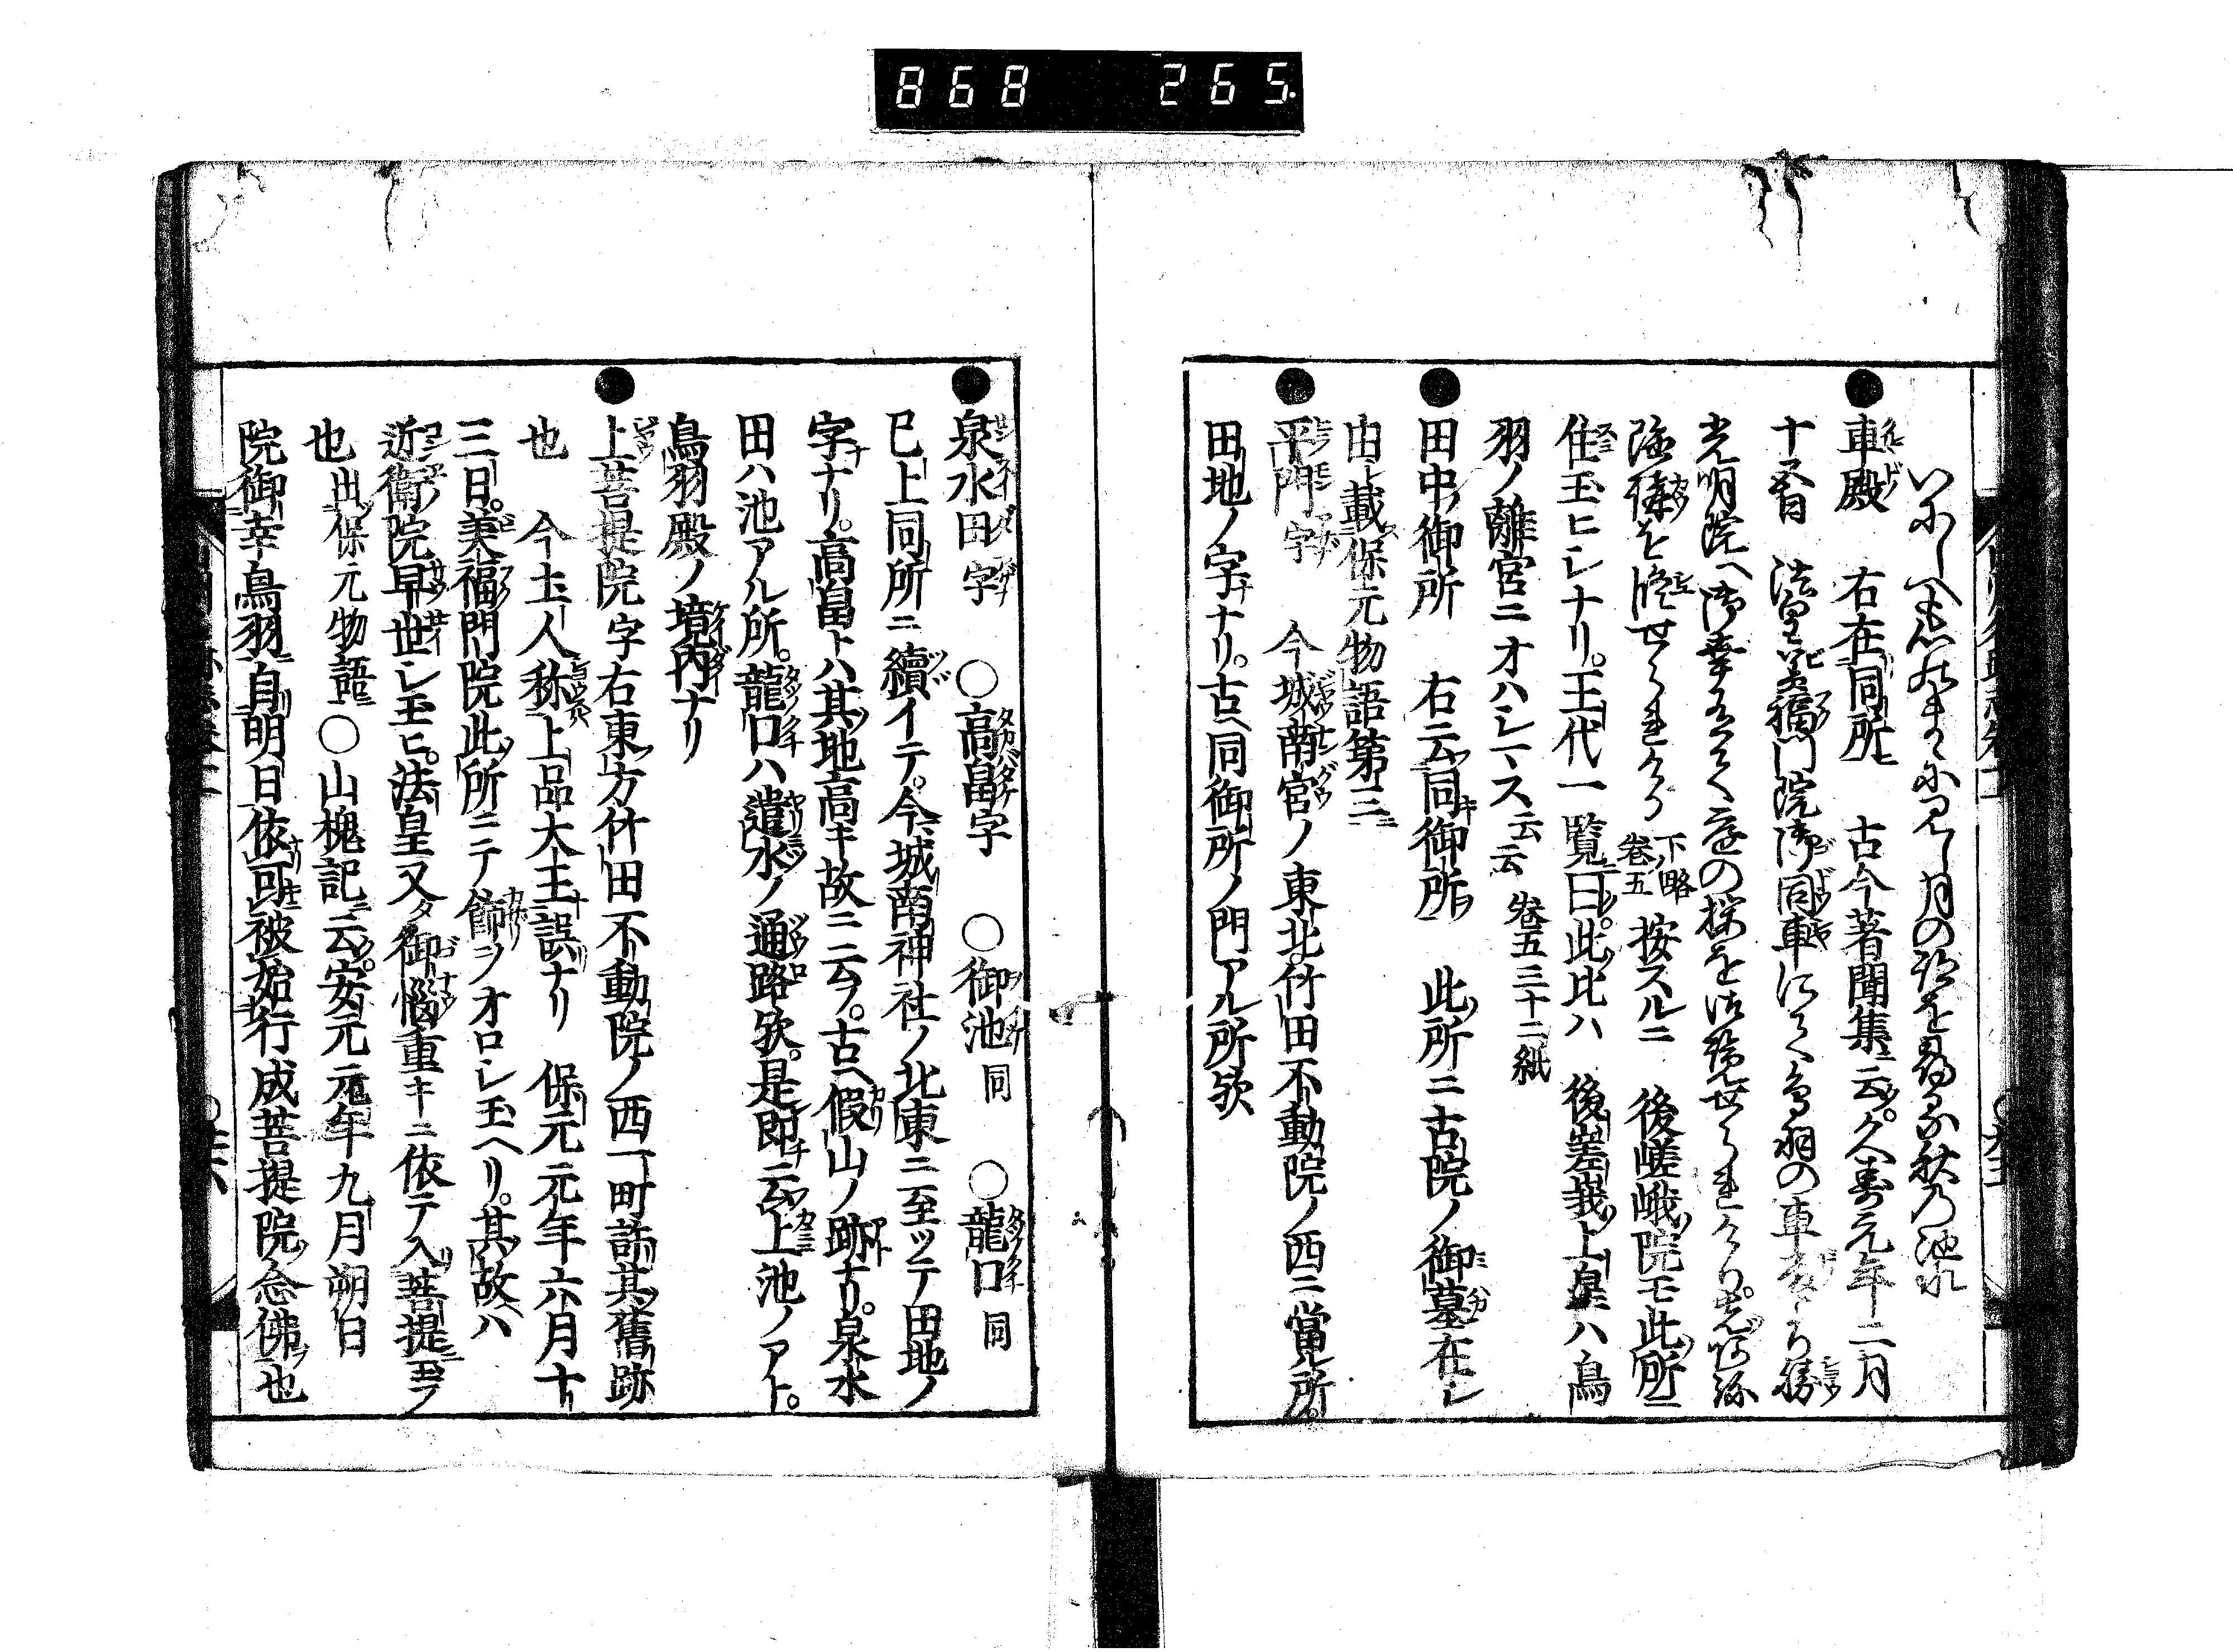 868 265.
いにしへも心のまゝにみし月の跡を尋る秋の池水
●車殿 右在同所 古今著聞集ニ云ク久寿元年二月
十五日 法皇美福門院御同車にて鳥羽の車殿より勝
光明院へ御幸ありて庭の桜を御覧せられけり
住玉ヒシナリ。王代一覧曰。此比ハ 後嵯峨上皇ハ鳥
羽ノ離宮ニオハシマス云云 巻五三十二紙
●田中御所 右云同御所 此所ニ古院ノ御墓在シ
由載保元物語第三
●平門字 今城南宮ノ東北竹田不動院ノ西ニ當ル所。
田地ノ字ナリ。古ヘ同御所ノ門アル所欤
●泉水田字 ○高畠字 ○御池同 ○龍口同
已上同所ニ續イテ。今城南神社ノ北東ニ至ッテ田地ノ
字ナリ。高畠トハ其地高キ故ニ云フ。古ヘ假山ノ跡ナリ。泉水
田ハ池アル所。龍口ハ遣水ノ通路欤。是即チ云上池ノアト。
鳥羽殿ノ境内ナリ
●上菩提院字右東方竹田不動院ノ西一町許其舊跡
也 今土人称上品大王誤ナリ 保元元年六月十
三日。美福門院此所ニテ飾ヲオロシ玉ヘリ。其故ハ
近衛院早世シ玉ヒ。法皇又タ御惱重キニ依テ入菩提玉フ
也出保元物語 ○山槐記ニ云。安元元年九月朔日
院御幸鳥羽自明日依可被始行成菩提院念佛也